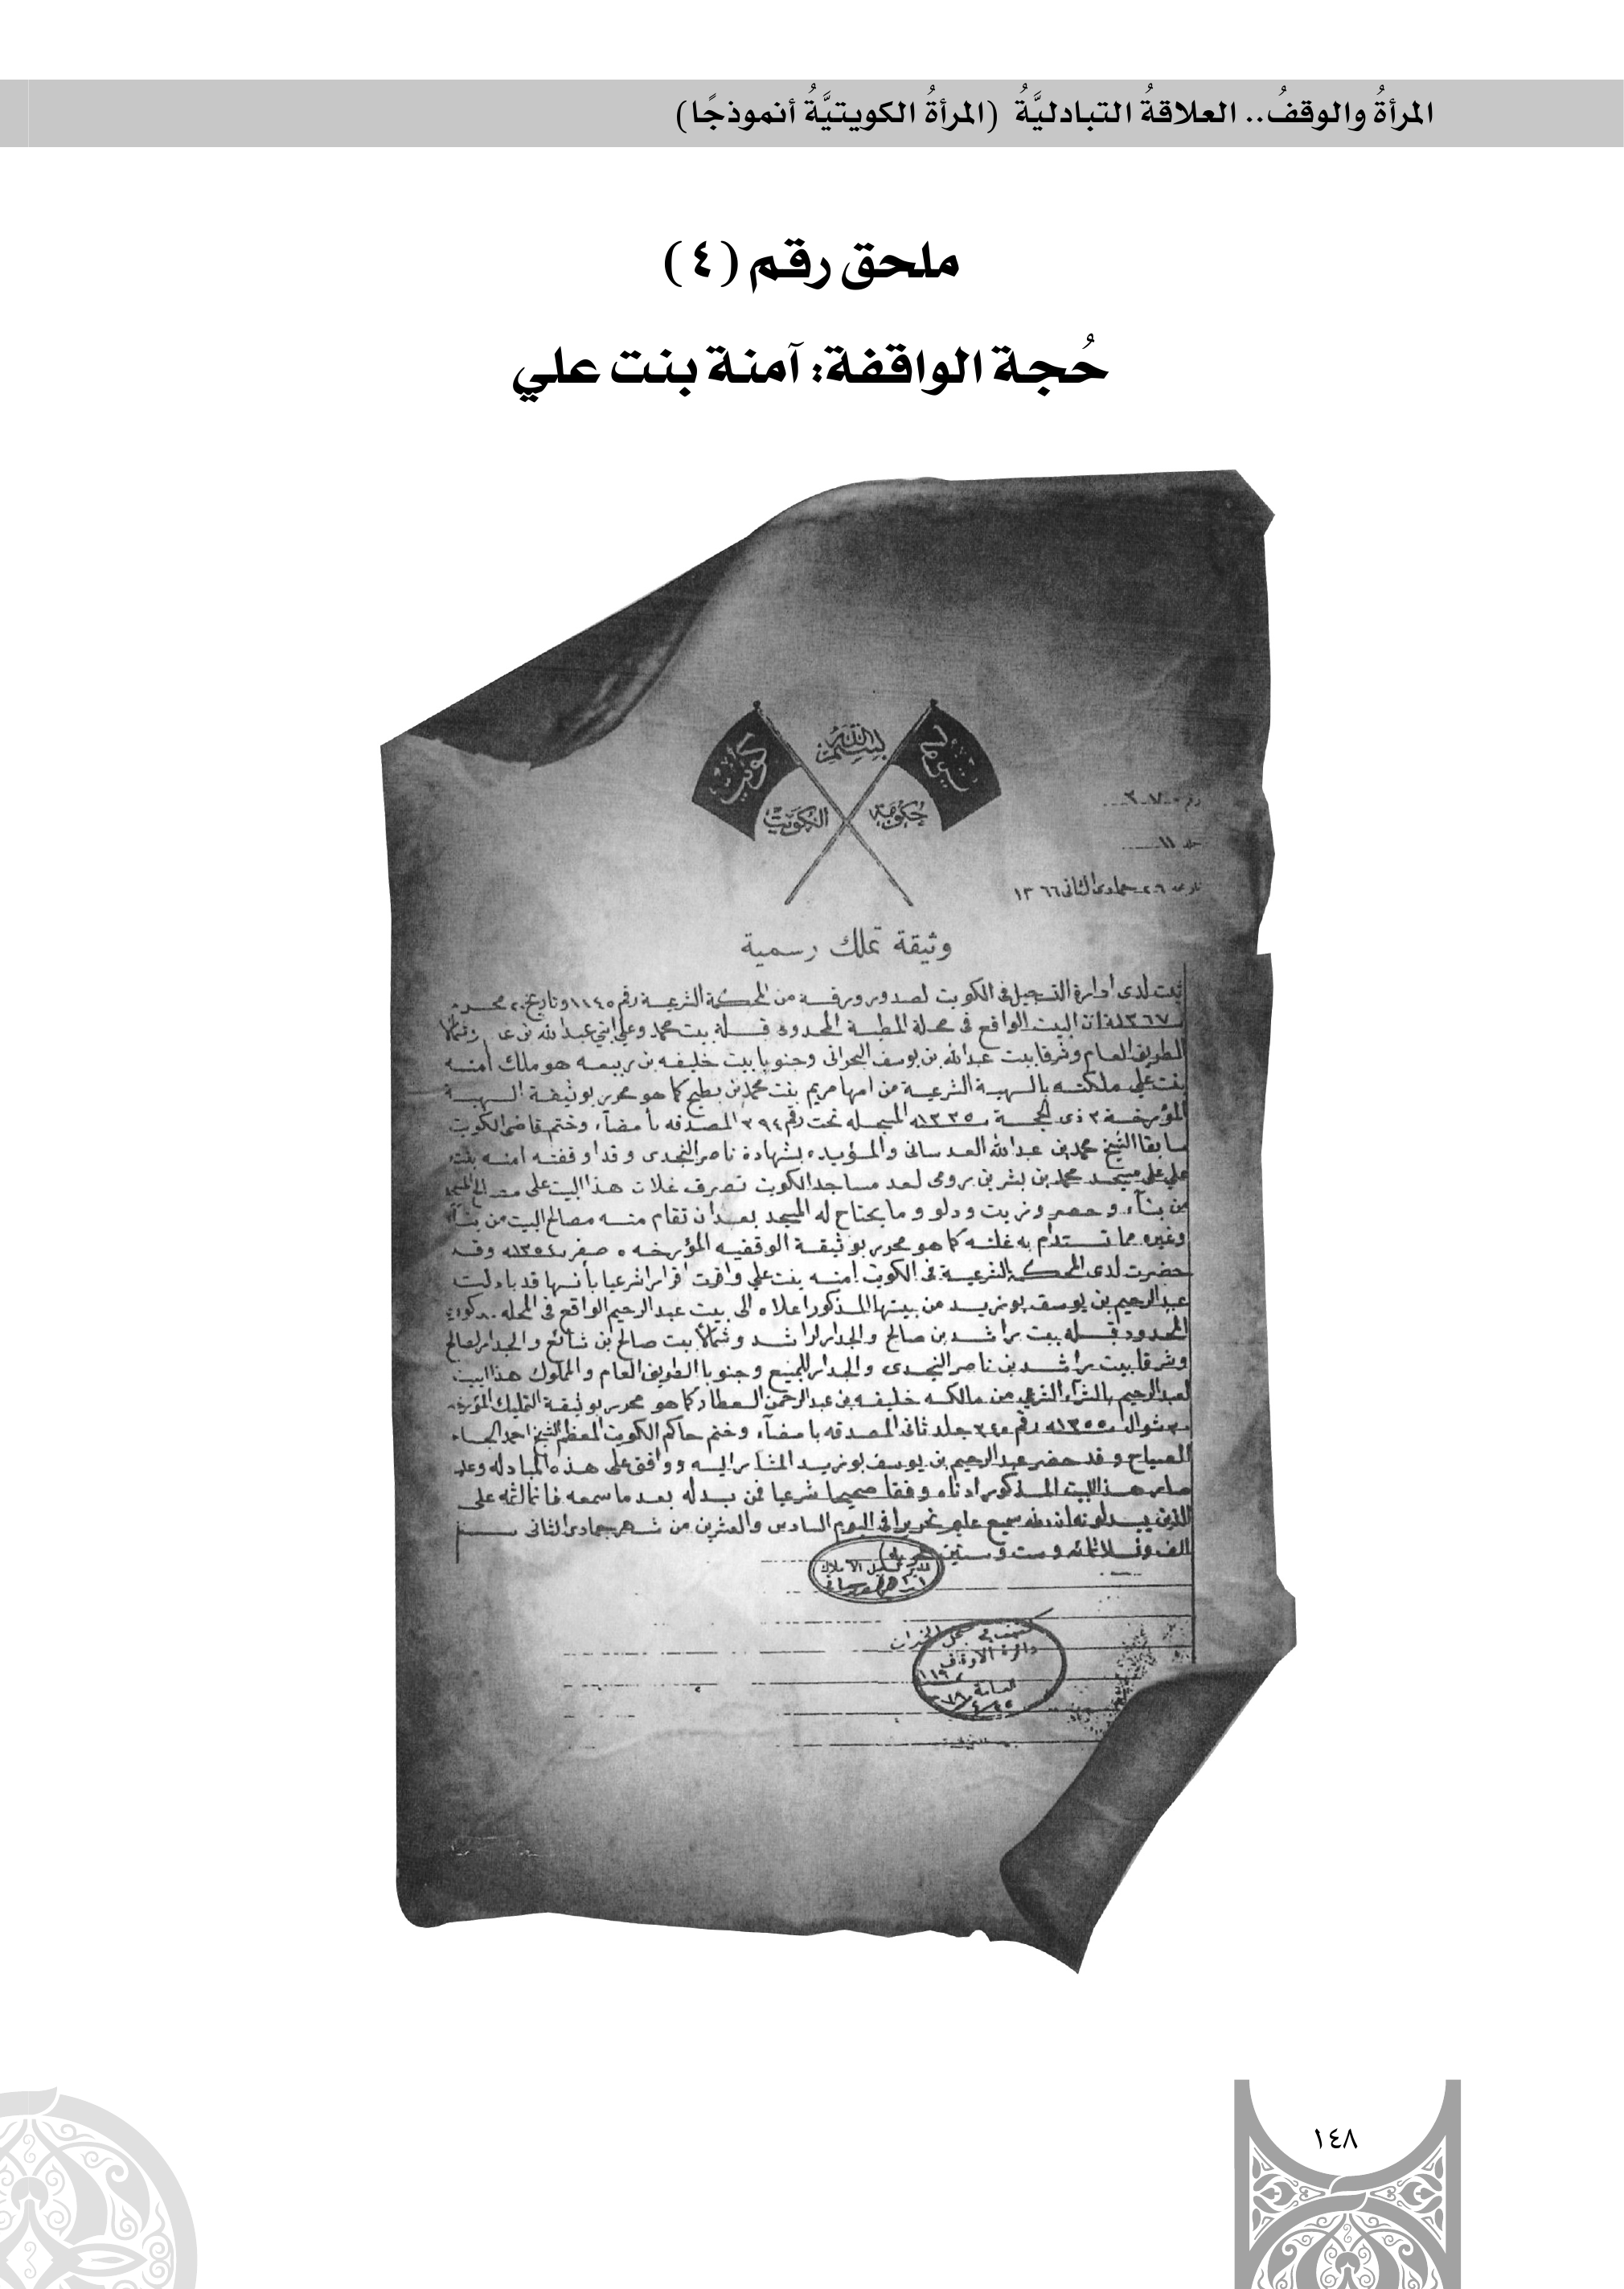 المرأةُ والوقفُ.. العلاقةُ التبادليَّةُ (المرأةُ الكويتيَّةُ أنموذجًا)
ملحق رقم (٤)
حُجة الواقفة: آمنة بنت علي
بسم الله
كويت
حكومة الكويت
رقم
جلد ١١
تاريخ ٢٦ جمادى الثاني ١٣٦٦
وثيقة تملك رسمية
ثبت لدى ادارة التسجيل في الكويت لصدور ورقة من المحكمة الشرعية رقم ١١٤٥ وتاريخ ٢٠ محرم
١٣٦٧ ان البيت الواقع في محلة المطبة المحدود قبلة بيت محمد وعلي ابني عبدالله بن وشمالا
الطريق العام وشرقا بيت عبدالله بن يوسف البحراني وجنوبا بيت خليفه بن ربيعه هو ملك امنه
بنت علي ملكته بالهبة الشرعية من امها مريم بنت محمد بن بطيح كما هو محرر بوثيقة الهبة
المؤرخة ٣ ذي الحجة ١٣٣٥ه المسجله تحت رقم ٣٩٤ المصدقه بأمضاء وختم قاضي الكويت
سابقا الشيخ محمد بن عبدالله العدساني والمؤيده بشهادة ناصر النجدى وقد اوقفته امنه بنت
علي على مسجد محمد بن بشر بن رومي احد مساجد الكويت تصرف غلات هذا البيت على مصالح المسجد
من بنآء وحصر وزيت ودلو وما يحتاج له المسجد بعد ان تقام منه مصالح البيت من بنآء
وغيره مما تستدام به غلته كما هو محرر بوثيقة الوقفيه المؤرخه ٥ صفر ١٣٥٤ه وقد
حضرت لدى المحكمة الشرعية في الكويت امنه بنت علي واقرت اقرارا شرعيا بأنها قد بادلت
عبدالرحيم بن يوسف بوزبد من بيتها المذكور اعلاه الى بيت عبدالرحيم الواقع في المحله
المحدود قبله بيت راشد بن صالح والجدار لراشد وشمالا بيت صالح بن شائع والجدار لصالح
وشرقا بيت راشد بن ناصر النجدى والجدار للجميع وجنوبا الطريق العام والمملوك هذا البيت
لعبدالرحيم بالشرآء الشرعي من مالكه خليفه بن عبدالرحمن العطار كما هو محرر بوثيقة التمليك المؤرخه
٣٠ شوال ١٣٥٥ه رقم ٣٤٠ جلد ثاني المصدقه بامضآء وختم حاكم الكويت المعظم الشيخ احمد الجابر
الصباح وقد حضر عبدالرحيم بن يوسف بوزبد المشار اليه ووافق على هذه المبادله وعليه
صار هذا البيت المذكور ادناه وقفا صحيحا شرعيا فمن بدله بعد ما سمعه فانما اثمه على
الذين يبدلونه ان الله سميع عليم تحريرا في اليوم السادس والعشرين من شهر جمادى الثاني سنة
الف وثلاثمائه وست وستين هجريه
مدير تسجيل الاملاك
دائرة الاوقاف
العامة
١٤٨